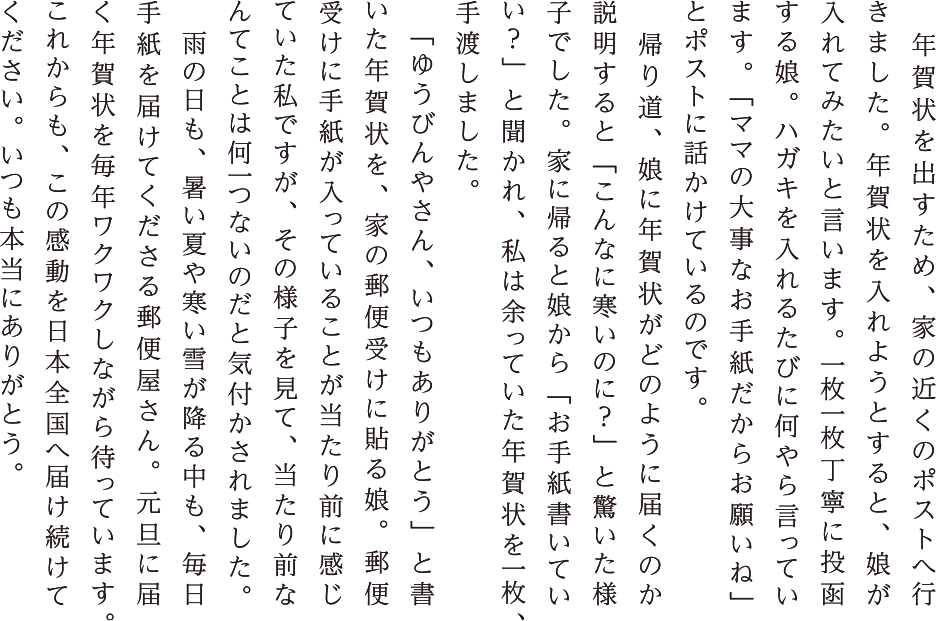 年賀状を出すため、家の近くのポストへ行
きました。年賀状を入れようとすると、娘が
入れてみたいと言います。一枚一枚丁寧に投函
する娘。ハガキを入れるたびに何やら言ってい
ます。「ママの大事なお手紙だからお願いね」
とポストに話かけているのです。
　帰り道、娘に年賀状がどのように届くのか
説明すると「こんなに寒いのに？」と驚いた様
子でした。家に帰ると娘から「お手紙書いてい
い？」と聞かれ、私は余っていた年賀状を一枚、
手渡しました。
　「ゆうびんやさん、いつもありがとう」と書
いた年賀状を、家の郵便受けに貼る娘。郵便
受けに手紙が入っていることが当たり前に感じ
ていた私ですが、その様子を見て、当たり前な
んてことは何一つないのだと気付かされました。
　雨の日も、暑い夏や寒い雪が降る中も、毎日
手紙を届けてくださる郵便屋さん。元旦に届
く年賀状を毎年ワクワクしながら待っています。
これからも、この感動を日本全国へ届け続けて
ください。いつも本当にありがとう。